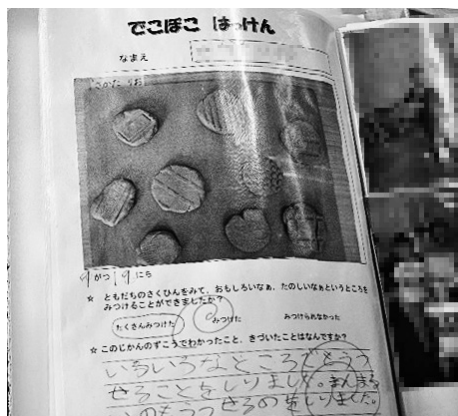 でこぼこ はっけん
なまえ
9がつ19にち
☆ ともだちのさくひんをみて、おもしろいなぁ、たのしいなぁというところを
みつけることができましたか？
たくさんみつけた みつけた みつけられなかった
☆ このじかんのずこうでわかったこと、きづいたことはなんですか？
いろいろなところで
せることをしりました。まんまる
しりました。